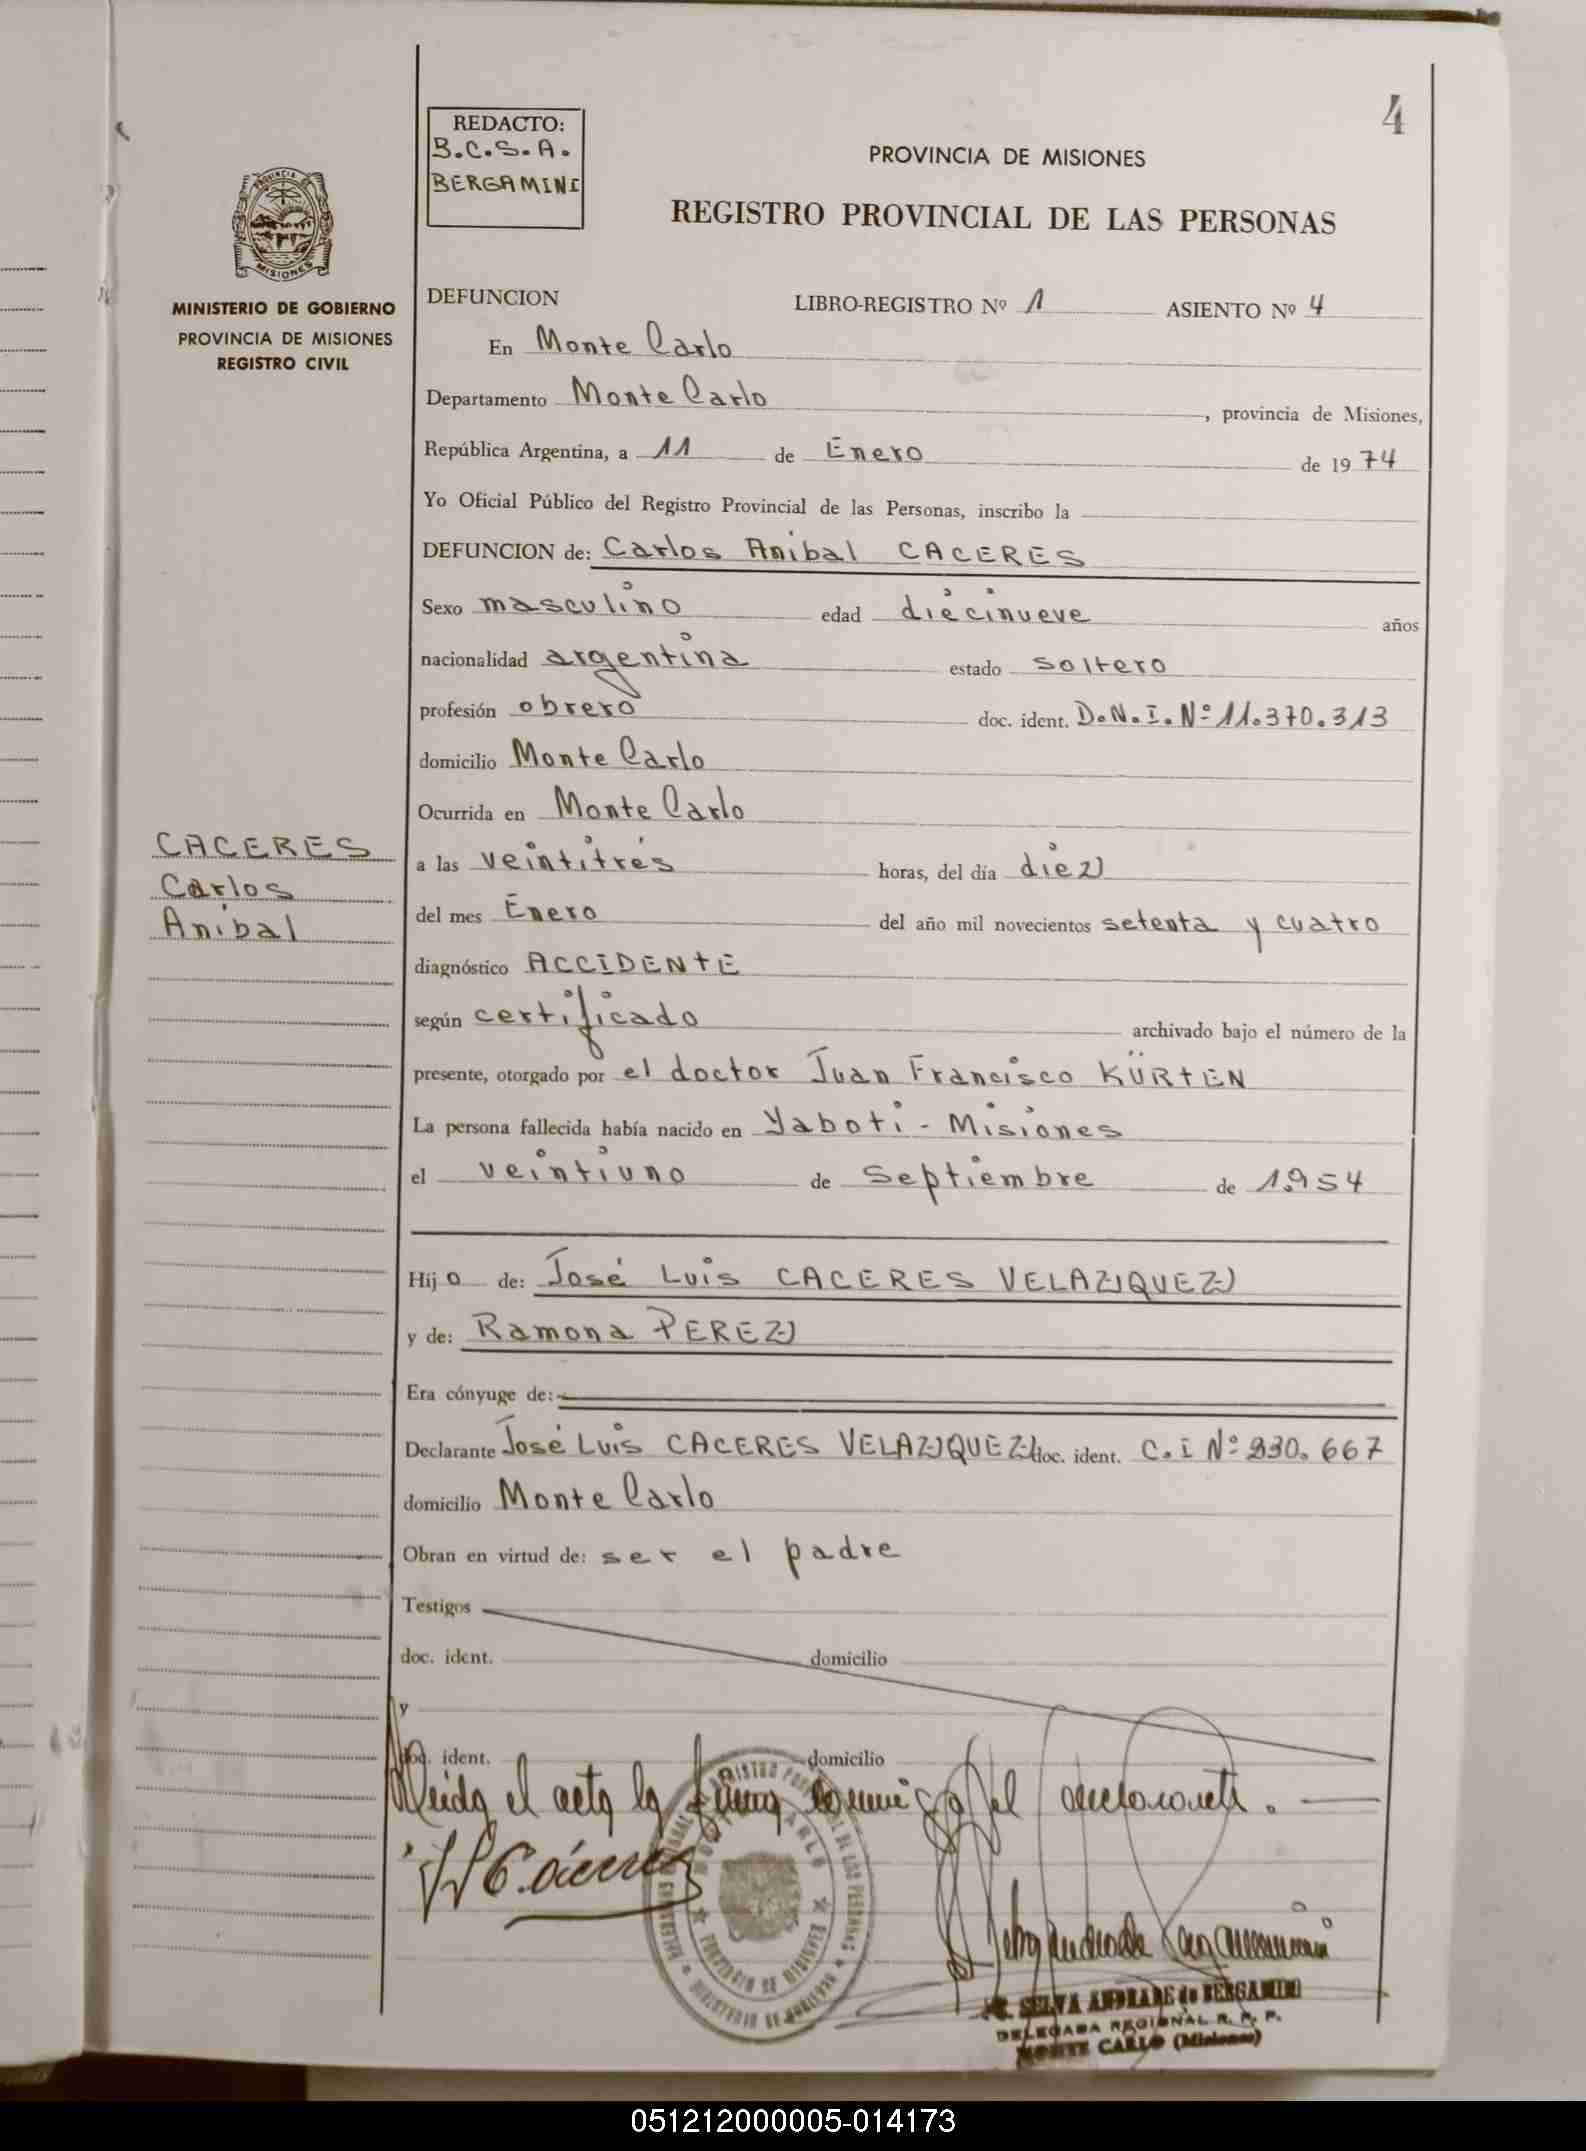 4
REDACTO:
B.C.S.A.
BERGAMINI
PROVINCIA DE MISIONES
REGISTRO PROVINCIAL DE LAS PERSONAS
PROVINCIA DE
MISIONES
MINISTERIO DE GOBIERNO
PROVINCIA DE MISIONES
REGISTRO CIVIL
DEFUNCION LIBRO-REGISTRO Nº 1 ASIENTO Nº 4
En Monte Carlo
Departamento Monte Carlo, provincia de Misiones,
República Argentina, a 11 de Enero de 1974
Yo Oficial Público del Registro Provincial de las Personas, inscribo la
DEFUNCION de: Carlos Anibal CACERES
Sexo masculino edad diecinueve años
nacionalidad argentina estado soltero
profesión obrero doc. ident. D.N.I. Nº 11.370.313
domicilio Monte Carlo
Ocurrida en Monte Carlo
CACERES
Carlos
Anibal
a las veintitrés horas, del día diez
del mes Enero del año mil novecientos setenta y cuatro
diagnóstico ACCIDENTE
según certificado archivado bajo el número de la
presente, otorgado por el doctor Juan Francisco KÜRTEN
La persona fallecida había nacido en Yaboti - Misiones
el veintiuno de Septiembre de 1.954
Hijo de: José Luis CACERES VELAZQUEZ
y de: Ramona PEREZ
Era cónyuge de:
Declarante José Luis CACERES VELAZQUEZ doc. ident. C.I Nº 930.667
domicilio Monte Carlo
Obran en virtud de: ser el padre
Testigos
doc. ident. domicilio
y
doc. ident. domicilio
Leida el acta la firma conmigo el declarante.
SELVA ANDRADE de BERGAMINI
DELEGADA REGIONAL R. P. P.
MONTE CARLO (Misiones)
051212000005-014173